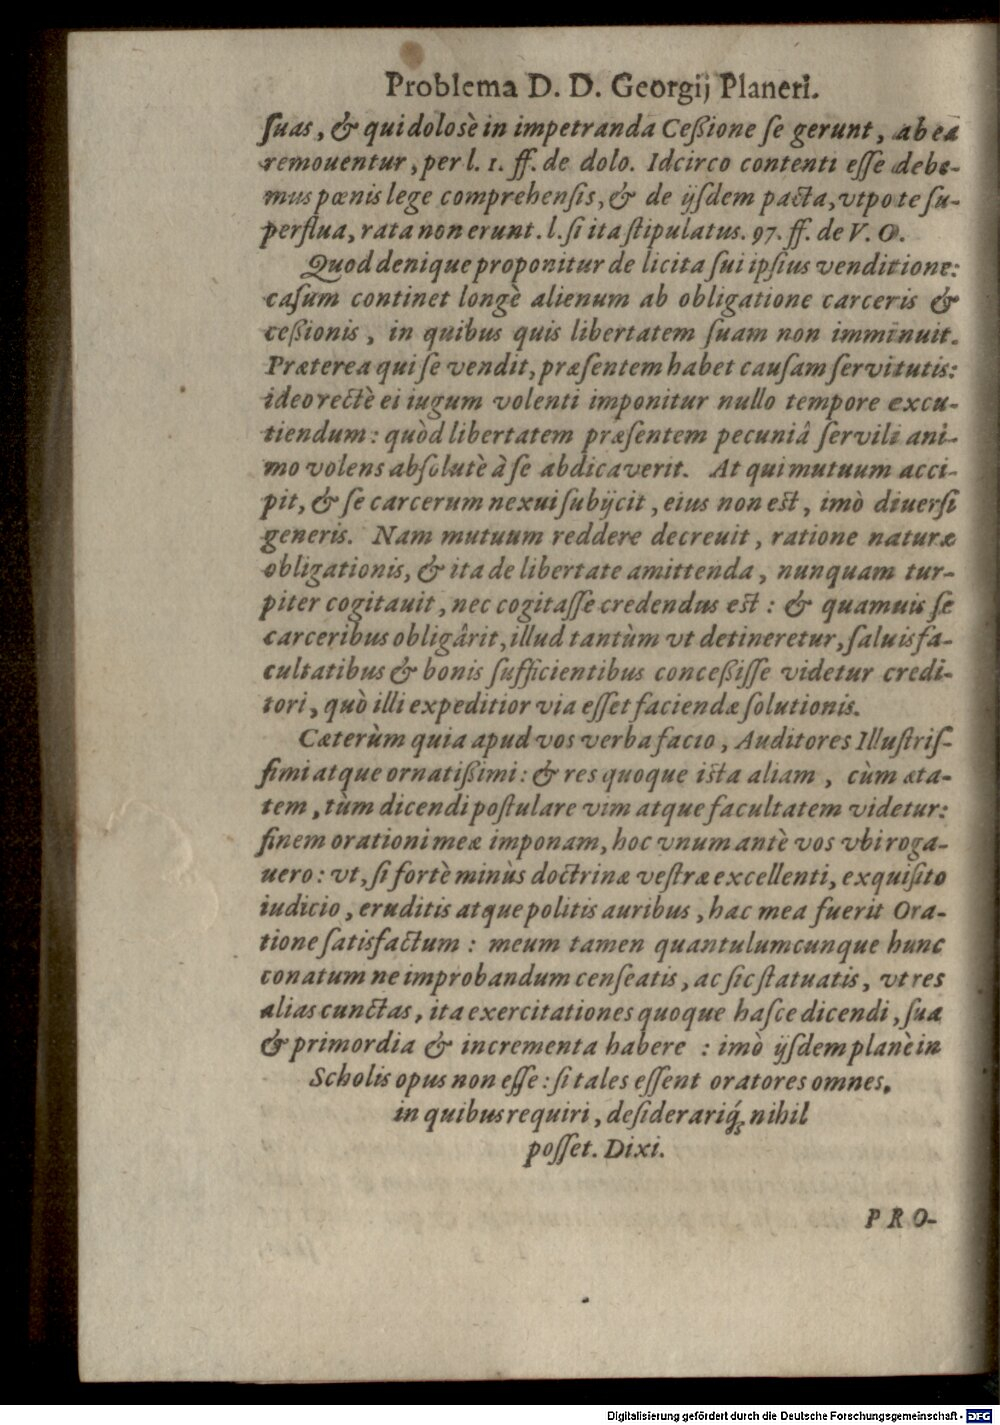 Problema D. D. Georgij Planeri.
ſuas, & qui dolosè in impetranda Ceßione ſe gerunt, ab ea
remouentur, per l. 1. ff. de dolo. Idcirco contenti eſſe debe-
mus pœnis lege comprehenſis, & de ijſdem pacta, vtpote ſu-
perflua, rata non erunt. l. ſi ita ſtipulatus. 97. ff. de V. O.
Quod denique proponitur de licita ſui ipſius venditione:
caſum continet longè alienum ab obligatione carceris &
ceßionis, in quibus quis libertatem ſuam non imminuit.
Præterea qui ſe vendit, præſentem habet cauſam ſervitutis:
ideo rectè ei iugum volenti imponitur nullo tempore excu-
tiendum: quòd libertatem præſentem pecuniâ ſervili ani-
mo volens abſolutè à ſe abdicaverit. At qui mutuum acci-
pit, & ſe carcerum nexui ſubijcit, eius non est, imò diuerſi
generis. Nam mutuum reddere decreuit, ratione naturæ
obligationis, & ita de libertate amittenda, nunquam tur-
piter cogitauit, nec cogitaſſe credendus est: & quamuis ſe
carceribus obligârit, illud tantùm vt detineretur, ſaluis fa-
cultatibus & bonis ſufficientibus conceßiſſe videtur credi-
tori, quò illi expeditior via eſſet faciendæ ſolutionis.
Cæterùm quia apud vos verba facio, Auditores Illuſtriſ-
ſimi atque ornatißimi: & res quoque ista aliam, cùm æta-
tem, tùm dicendi poſtulare vim atque facultatem videtur:
finem orationi meæ imponam, hoc vnum antè vos vbi roga-
uero: vt, ſi fortè minùs doctrinæ veſtræ excellenti, exquiſito
iudicio, eruditis atque politis auribus, hac mea fuerit Ora-
tione ſatisfactum: meum tamen quantulumcunque hunc
conatum ne improbandum cenſeatis, ac ſic ſtatuatis, vt res
alias cunctas, ita exercitationes quoque haſce dicendi, ſua
& primordia & incrementa habere: imò ijſdem planè in
Scholis opus non eſſe: ſi tales eſſent oratores omnes,
in quibus requiri, deſiderariq́; nihil
poſſet. Dixi.
PRO-
Digitalisierung gefördert durch die Deutsche Forschungsgemeinschaft - DFG